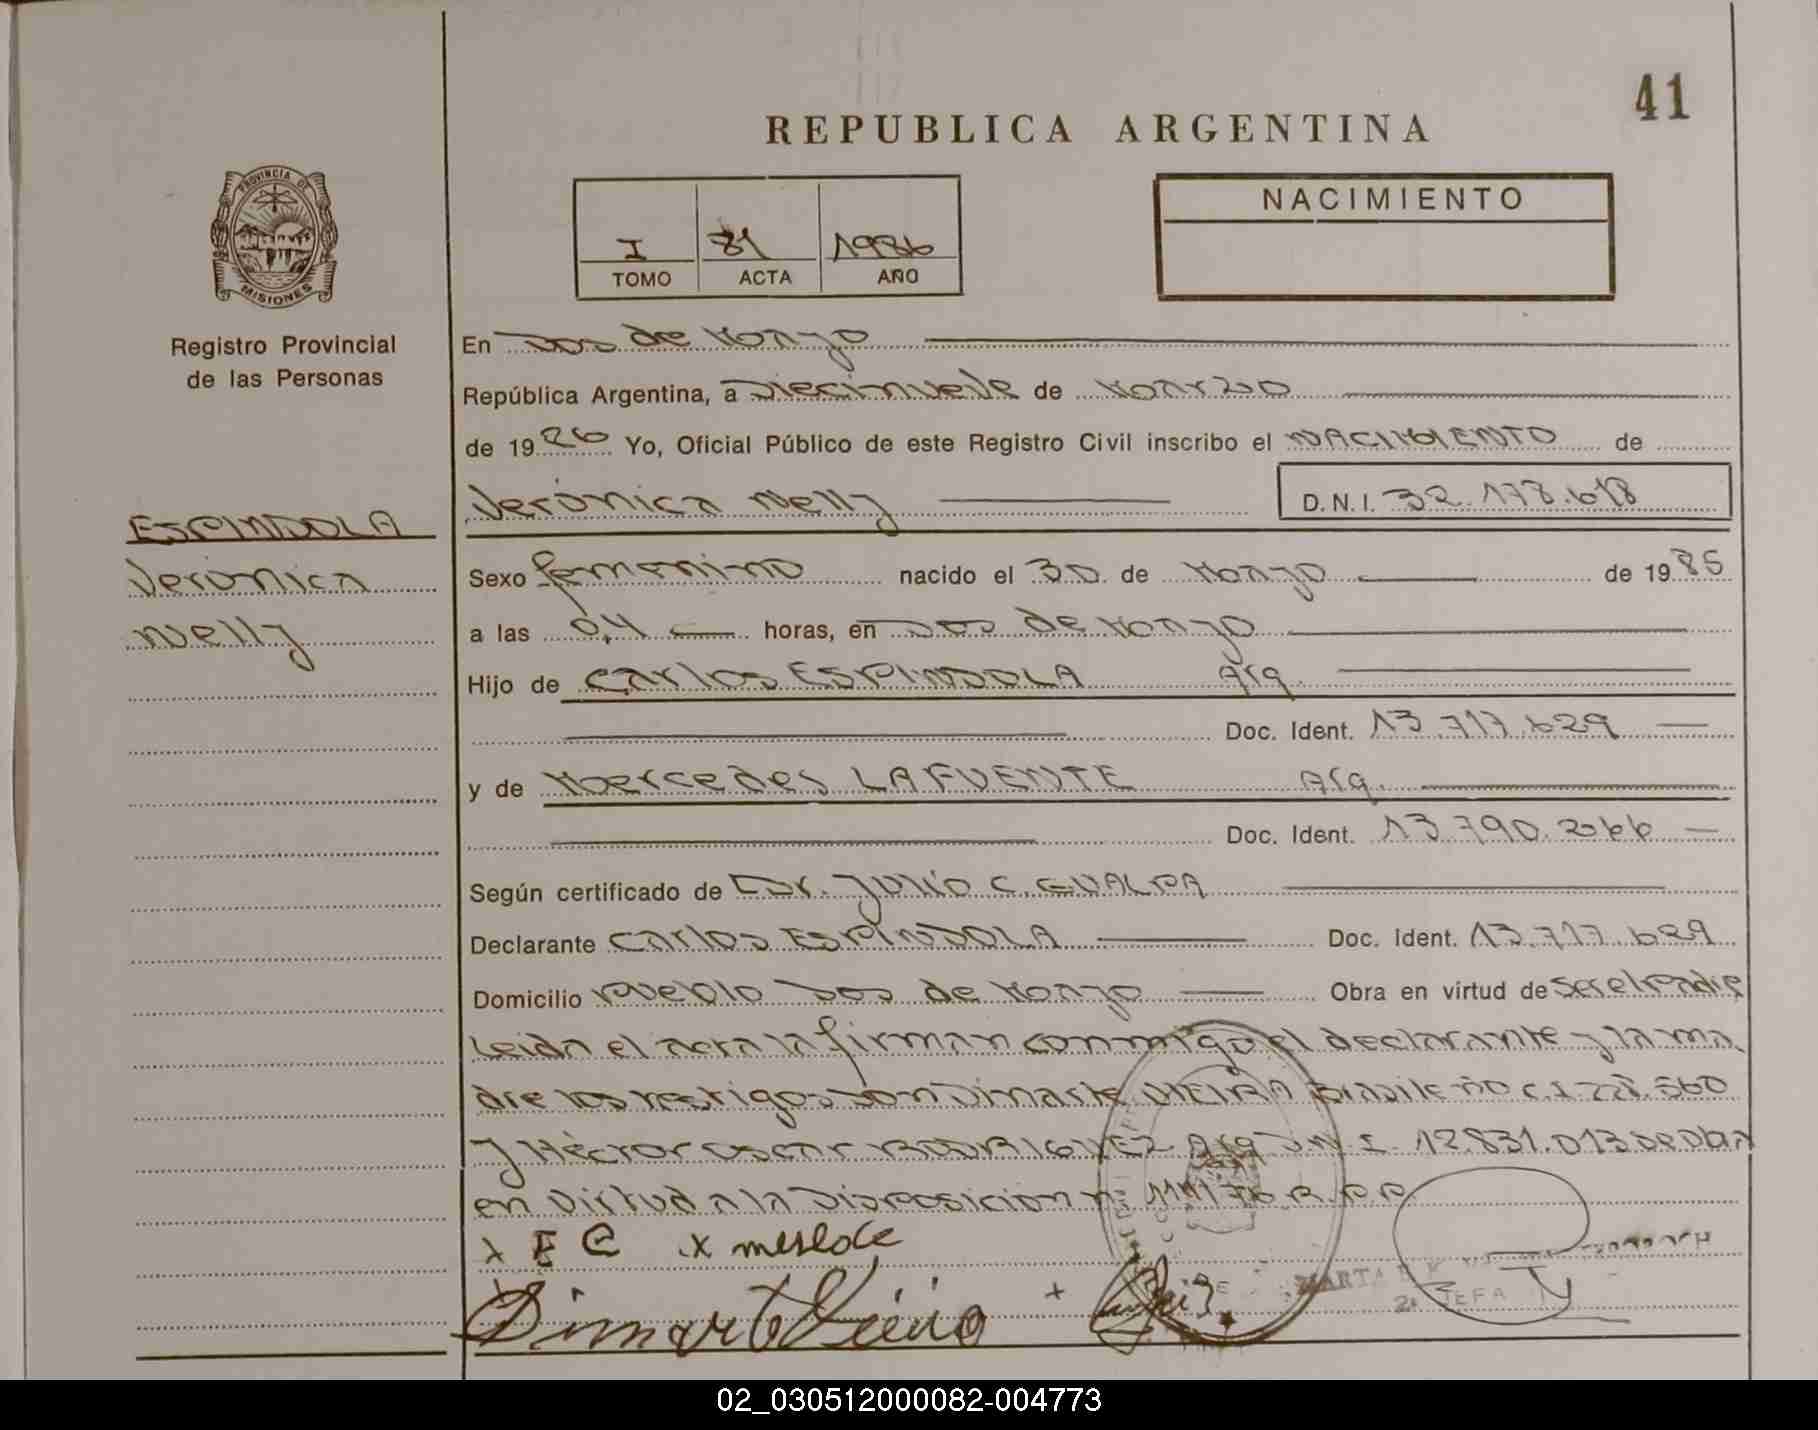 41
REPUBLICA ARGENTINA
PROVINCIA DE
MISIONES
Registro Provincial
de las Personas
I 81 1986
TOMO ACTA AÑO
NACIMIENTO
En Dos de Mayo
República Argentina, a Diecinueve de Marzo
de 1986 Yo, Oficial Público de este Registro Civil inscribo el NACIMIENTO de
Verónica Nelly D.N.I. 32.178.618
ESPINDOLA
Veronica
Nelly
Sexo femenino nacido el 30 de Mayo de 1985
a las 04 horas, en Dos de Mayo
Hijo de Carlos ESPINDOLA Arg.
Doc. Ident. 13.717.629
y de Mercedes LAFUENTE Arg.
Doc. Ident. 13.790.266
Según certificado de Dr. Julio C. GUALPA
Declarante Carlos ESPINDOLA Doc. Ident. 13.717.629
Domicilio Pueblo Dos de Mayo Obra en virtud de ser el Padre
Leida el acta la firman conmigo el declarante y la ma
dre los testigos son Dimarte VIEIRA Brasileño C.I 228.560
y Héctor Oscar RODRIGUEZ Arg D.N.I 12.831.013 se Obra
en virtud a la Disposicion R.P.P.
x E C x
Dimart Vieira +
MARTA
JEFA
02_030512000082-004773